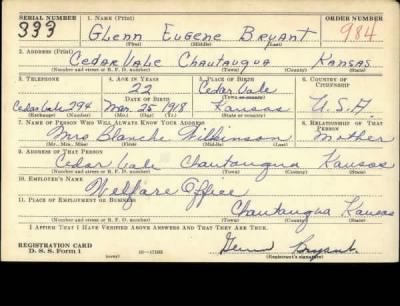 SERIAL NUMBER 1. NAME (Print) ORDER NUMBER
333 Glenn Eugene Bryant 984
(First) (Middle) (Last)
2. ADDRESS (Print)
Cedar Vale Chautauqua Kansas
(Number and street or R. F. D. number) (Town) (County) (State)
3. TELEPHONE 4. AGE IN YEARS 5. PLACE OF BIRTH 6. COUNTRY OF CITIZENSHIP
22 Cedar Vale
DATE OF BIRTH (Town or county)
Cedar Vale 294 Mar. 25 1918 Kansas U.S.A.
(Exchange) (Number) (Mo.) (Day) (Yr.) (State or country)
7. NAME OF PERSON WHO WILL ALWAYS KNOW YOUR ADDRESS 8. RELATIONSHIP OF THAT PERSON
Mrs Blanche Wilkinson Mother
(Mr., Mrs., Miss) (First) (Middle) (Last)
9. ADDRESS OF THAT PERSON
Cedar Vale Chautauqua Kansas
(Number and street or R. F. D. number) (Town) (County) (State)
10. EMPLOYER'S NAME
Welfare Office
11. PLACE OF EMPLOYMENT OR BUSINESS
Chautauqua Kansas
(Number and street or R. F. D. number) (Town) (County) (State)
I AFFIRM THAT I HAVE VERIFIED ABOVE ANSWERS AND THAT THEY ARE TRUE.
REGISTRATION CARD
D. S. S. Form 1 (over) Glenn Bryant
(Registrant's signature)